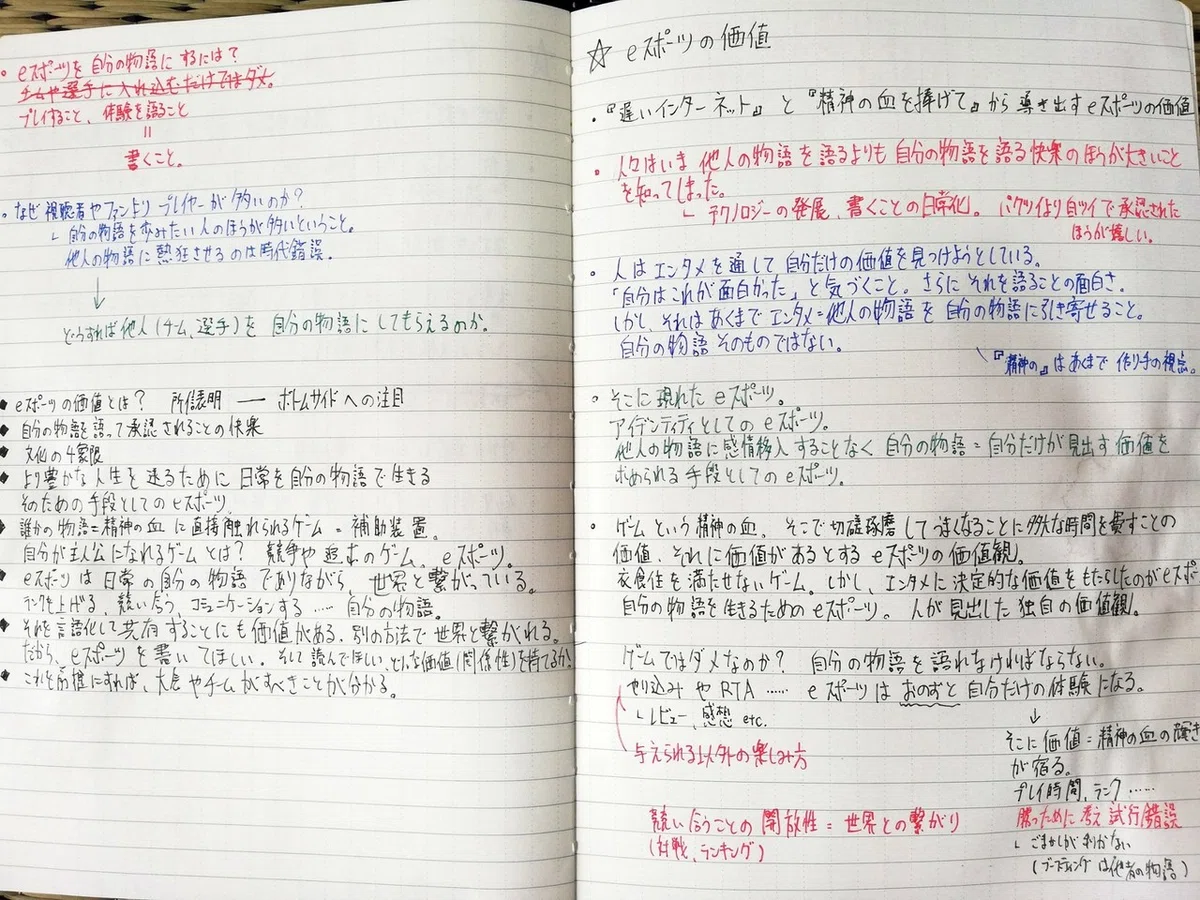 • eスポーツを 自分の物語に するには?
チームや選手に入れ込むだけではダメ。
プレイすること、体験を語ること
=
書くこと。
• なぜ 視聴者やファンより プレイヤーが 多いのか?
自分の物語を歩みたい人のほうが多いということ。
他人の物語に 熱狂させる のは時代錯誤。
↓
どうすれば他人 (チーム、選手) を 自分の物語に してもらえるのか。
◆ eスポーツの価値とは? 所信表明 ― ボトムサイドへの注目
◆ 自分の物語を語って承認されることの快楽
◆ 文化の4象限
◆ より豊かな人生を送るために 日常を自分の物語で生きる
そのための手段としてのeスポーツ。
◆ 誰かの物語=精神の血 に直接触れられるゲーム = 補助装置。
自分が主人公になれるゲームとは? 競争や追求のゲーム。eスポーツ。
◆ eスポーツは 日常の自分の物語でありながら、世界と繋がっている。
ランクを上げる、競い合う、コミュニケーションする …… 自分の物語。
◆ それを言語化して共有することにも価値がある。別の方法で世界と繋がれる。
だから、eスポーツを書いてほしい。そして読んでほしい。どんな価値(関係性)を持てるか。
◆ これを前提にすれば、大会やチームがすべきことが分かる。
☆ eスポーツの価値
• 『遅いインターネット』と『精神の血を捧げて』から 導き出すeスポーツの価値
• 人々はいま 他人の物語を語るよりも 自分の物語を語る快楽のほうが大きいこと
を知ってしまった。
└ テクノロジーの発展、書くことの日常化。 パクツイより自ツイで承認された
ほうが嬉しい。
• 人は エンタメを通して 自分だけの価値を見つけようとしている。
「自分はこれが面白かった」と気づくこと。さらにそれを語ることの面白さ。
しかし、それはあくまで エンタメ=他人の物語を 自分の物語に引き寄せること。
自分の物語そのものではない。
『精神の』はあくまで 作り手の視点。
• そこに 現れた eスポーツ。
アイデンティティとしての eスポーツ。
他人の物語に感情移入することなく 自分の物語=自分だけが見出す価値を
求められる手段としてのeスポーツ。
• ゲームという精神の血。そこで切磋琢磨してうまくなることに多大な時間を費すことの
価値、それに価値があるとするeスポーツの価値観。
衣食住を満たせないゲーム。しかし、エンタメに決定的な価値をもたらしたのがeスポーツ
自分の物語を生きるためのeスポーツ。人が見出した独自の価値観。
ゲームではダメなのか? 自分の物語を語れなければならない。
やり込みやRTA …… eスポーツは おのずと 自分だけの体験になる。
└ レビュー、感想 etc.
与えられる以外の楽しみ方
↓
そこに価値=精神の血の輝き
が宿る。
プレイ時間、ランク ……
勝つために考え 試行錯誤
└ ごまかしがきかない
(ブースティングは他者の物語)
競い合うことの開放性 = 世界との繋がり
(対戦、ランキング)